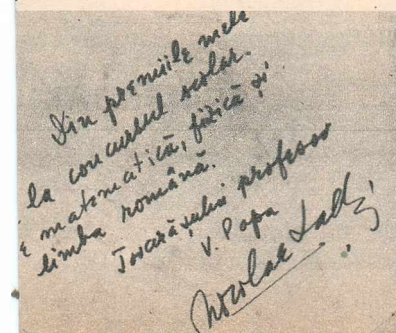 Din premiile mele
la concursul școlar.
matematică, fizică și
limba română.
Tovarășului profesor
V. Popa
Nicolae